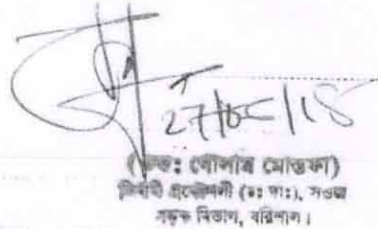 27/05/15
(মোঃ গোলাম মোস্তফা)
নির্বাহী প্রকৌশলী (চঃ দাঃ), সওজ
সড়ক বিভাগ, বরিশাল।